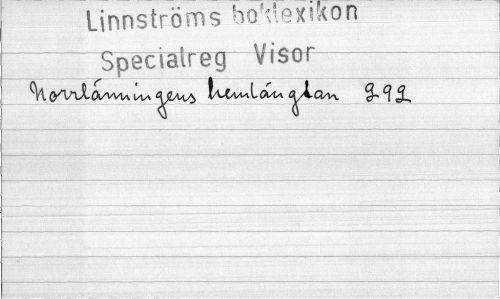 Linnströms boklexikon
Specialreg Visor
Norrlänningens hemlängtan 292